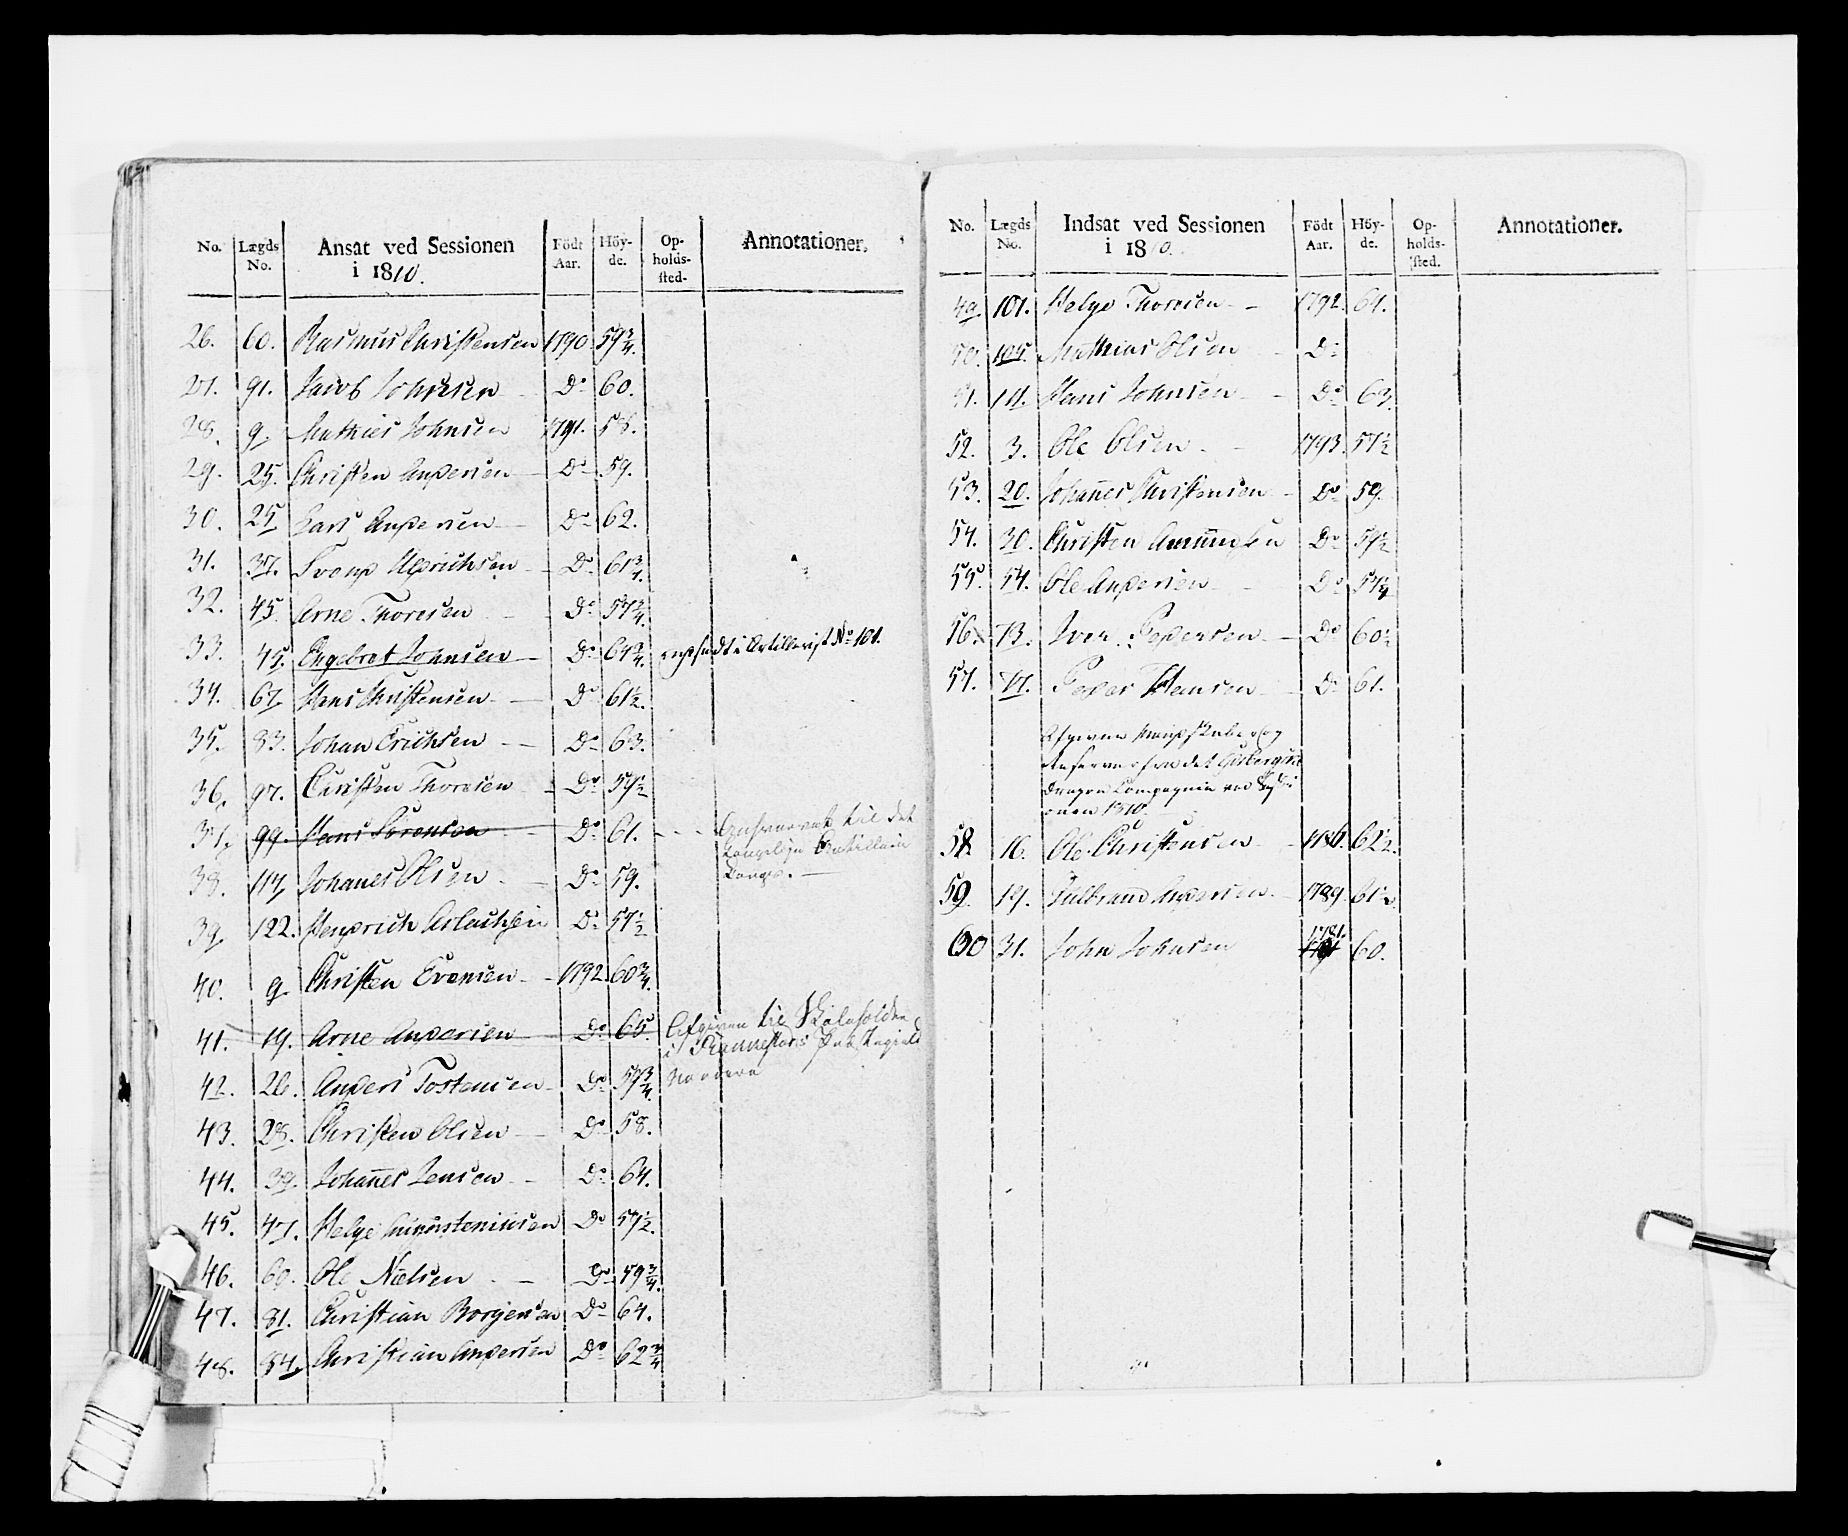 No. Lægds No. Ansat ved Sessionen i 1810. Födt Aar. Höyde. Opholdssted. Annotationer.
26. 60. Rasmus Christensen 1790 59 3/4.
27. 91. Jacob Johnsen Do 60.
28. 9. Mathies Johnsen 1791. 58.
29. 25. Christen Andersen Do 59.
30. 25 Lars Andersen Do 62.
31. 37. Svend Aldrichsen Do 61 3/4.
32. 45. Arne Thoresen Do 57 3/4.
33. 45. Engebret Johnsen Do 64 3/4. i Artillerist No 101.
34. 67. Hans Christensen Do 61 1/2.
35. 83. Johan Erichsen Do 63.
36. 97. Christen Thoresen Do 59 1/2
37. 99. Hans Sörensen Do 61. til det
Artillerie
38. 117. Johanes Olsen Do 59.
39. 122. Hendrich Aslachsen Do 57 1/2
40. 9. Christen Evensen 1792 60 3/4.
41. 19. Arne Andersen Do 65. Afgiven til
i
42. 26. Anders Tostensen Do 57 3/4.
43. 28. Christen Olsen Do 58.
44. 39. Johannes Jensen Do 64.
45. 47. Helge Do 57 1/2.
46. 60. Ole Nielsen Do 59 3/4.
47. 81. Christian Borgersen Do 64.
48. 84. Christian Andersen Do 62 3/4
No. Lægds No. Indsat ved Sessionen i 1810. Födt Aar. Höyde. Opholdssted. Annotationer.
49. 101. Helge Thoresen 1792. 61.
50. 105. Mathias Olsen Do
51. 111. Hans Johnsen Do 63.
52. 3. Ole Olsen 1793. 57 1/2
53. 20. Johannes Christensen Do 59.
54. 30. Christen Amundsen Do 57 1/2
55. 54. Ole Andersen Do 57 3/4
56. 73. Iver Pedersen Do 60 1/2
57. 77. Peder Hansen Do 61.
Afgivne Mandskaber og
Reserver fra det
Dragon Compagnie ved Sessi
onen 1810
58. 16. Ole Christensen 1786 62 1/2.
59. 19. Gulbrand Andersen 1789. 61 1/2.
60 31. John Johnsen 1781. 60.